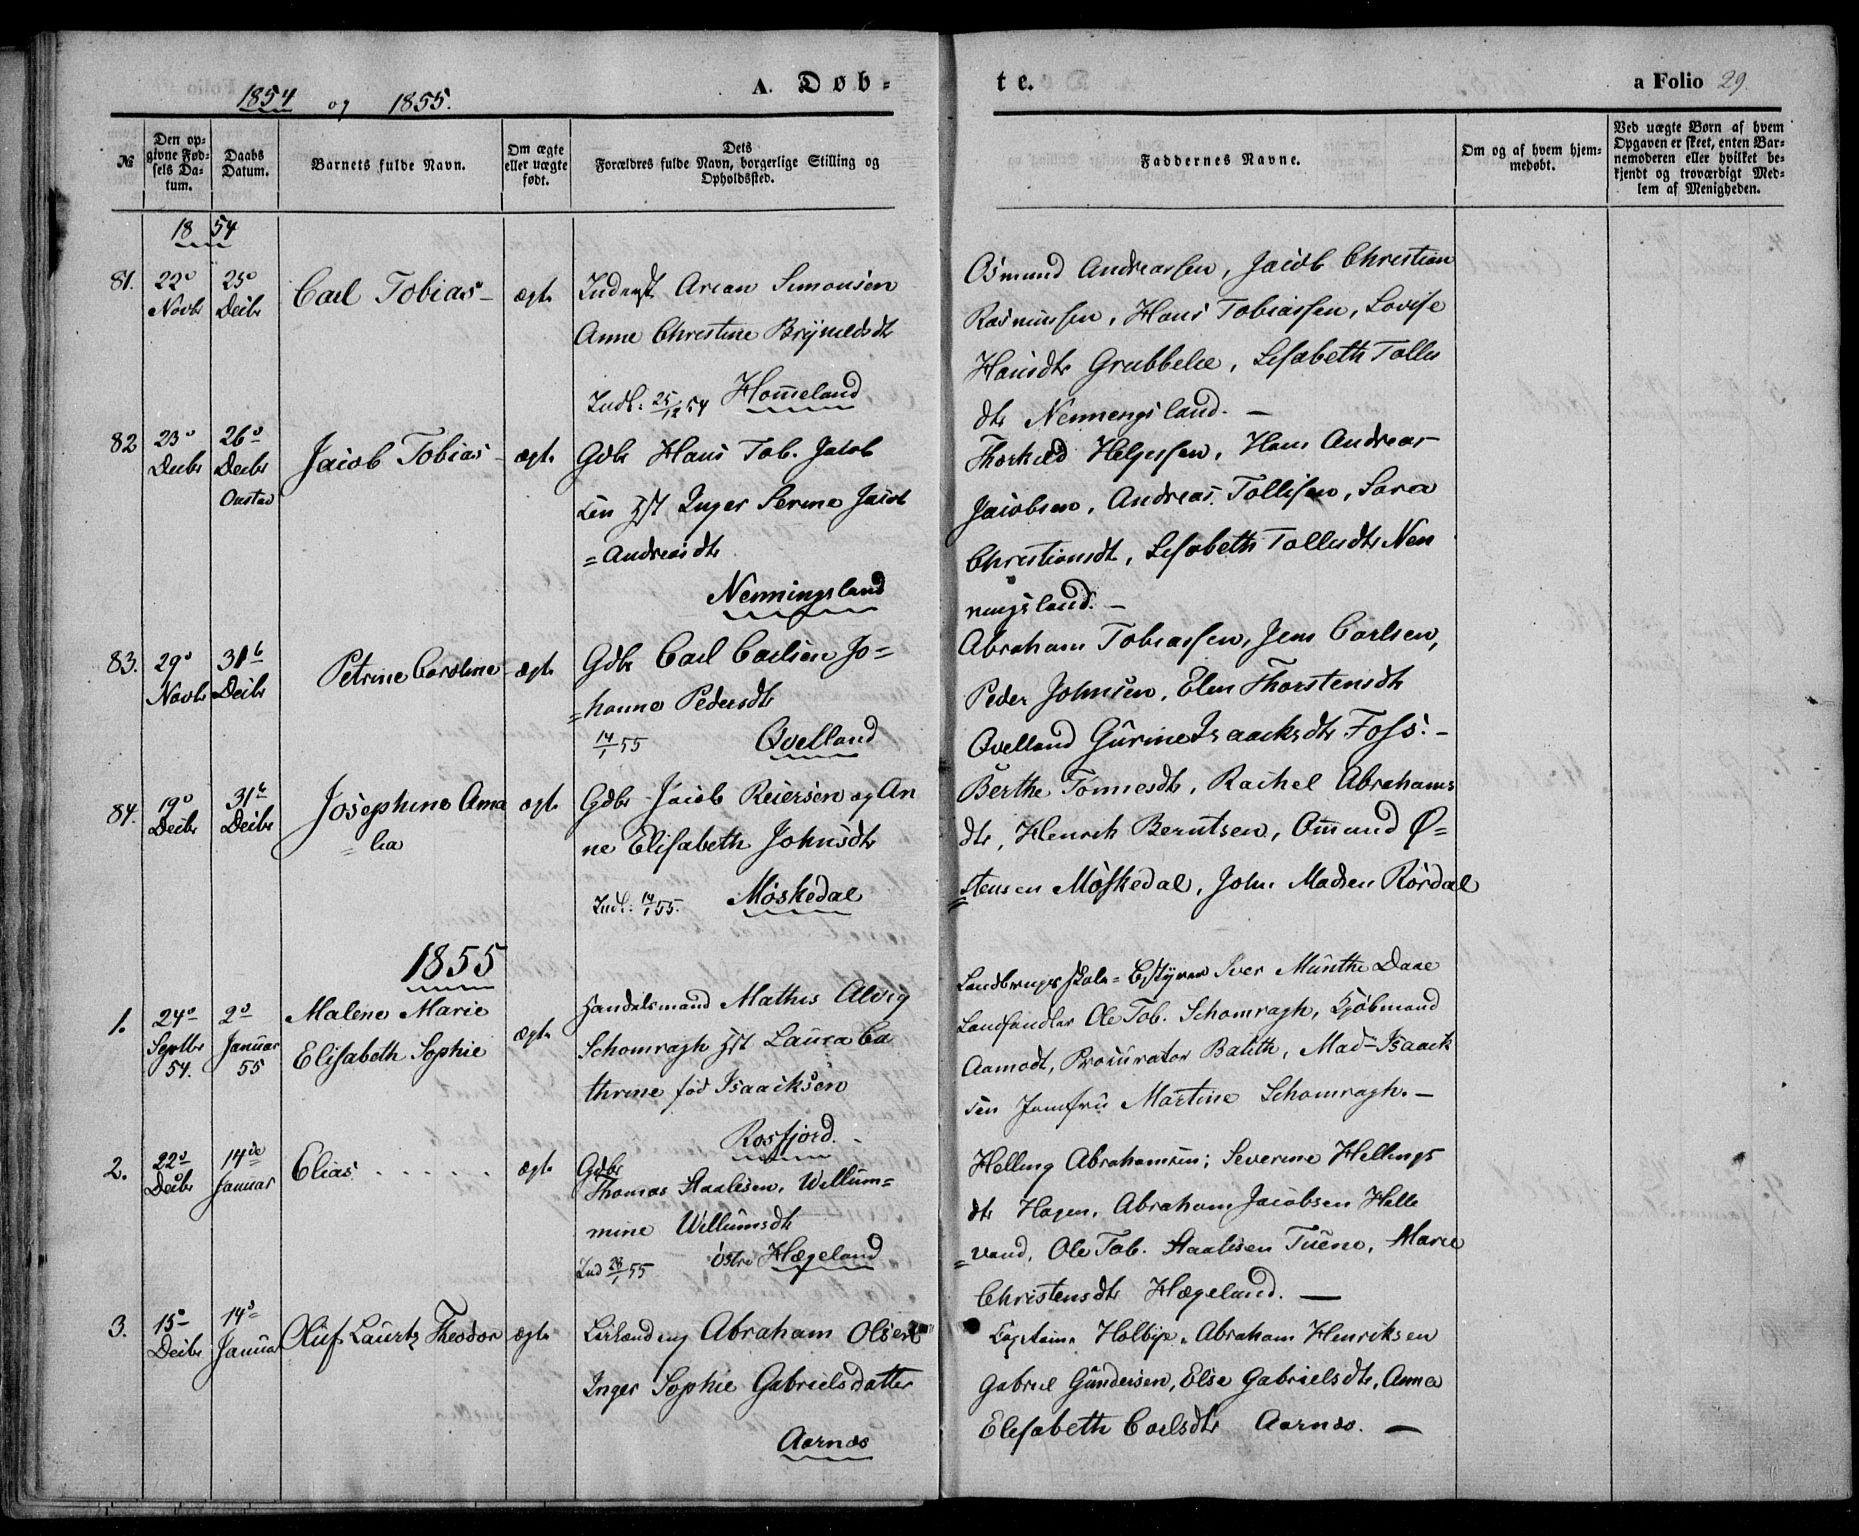 1854 og 1855.
A. Døb-
te.
a Folio 29.
№
Den op-
givne Fød-
sels Da-
tum.
Daabs
Datum.
Barnets fulde Navn.
Om ægte
eller uægte
født.
Dets
Forældres fulde Navn, borgerlige Stilling og
Opholdssted.
Faddernes Navne.
Om og af hvem hjem-
medøbt.
Ved uægte Børn af hvem
Opgaven er skeet, enten Bar-
nemoderen eller hvilket be-
kjendt og troværdigt Med-
lem af Menigheden.
18 54
81.
22º
Novbr
25º
Decbr
Carl Tobias
ægte
Arian Simonsen
Anne Christine Brynildsdtr
Indl: 25/12 54 Homeland
Osmund Andreassen, Jacob Christian
Rasmussen, Hans Tobiassen, Lovise
Hansdtr Grubbelie, Lisabeth Tolles
dtr Nenningsland. –
82
23º
Decbr
26º
Decbr
Jacob Tobias
ægte
Gdbr Hans Tob. Jacob
sen Hst Inger Serine Jacob
=Andreasdtr
Nenningsland
Thorkild Helgesen, Hans Andreas
Jacobsen, Andreas Tollisen, Sara
Christiansdtr, Lisabeth Tollesdtr Nen
ningsland. –
83.
29º
Novbr
31te
Decbr
Petrine Caroline
ægte
Gdbr Carl Carlsen Jo=
=hanne Pedersdtr
14/1 55 Qvelland
Abraham Tobiassen, Jens Carlsen,
Peder Johnsen, Elen Thorstensdtr
Qvelland Gurine Isaacksdtr Foss. –
84.
19º
Decbr
31te
Decbr
Josephine Ama
=lia
ægte
Gdbr Jacob Reiersen og An
ne Elisabeth Johnsdtr
Indl: 14/1 55. Møskedal
Berthe Tønnesdtr, Rachel Abrahams
dtr, Henrik Berntsen, Omund Ø=
=stensen Møskedal, John Madsen Rørdal
1855
1.
24º
Septbr
54.
2º
Januar
55
Malene Marie
Elisabeth Sophie
ægte
Handelsmand Mathis Alvig
Schomragh Hst Laura Ca
thrine fød Isaacksen
Rosfjord.
Landbrugsskole=Bestyrer Iver Munthe Daae
Landhandler Ole Tob. Schomragh, Kjøbmand
Aamodt, Procurator Balith, Mad=Isaack
sen Jomfru Martine Schomragh. –
2.
22º
Decbr
14de
Januar
Elias . . . . .
ægte
Gdbr
Thomas Staalesen, Willum=
mine Willumsdtr
Ind 28/1 55 østre Hægeland
Helling Abrahamsen; Severine Hellings
dtr Hagen, Abraham Jacobsen Helle
=vand, Ole Tob. Staalesen Tuene, Marie
Christensdtr Hægeland. –
3.
15º
Decbr
14º
Januar
Oluf Lauritz Theodor
ægte
Abraham Olsen
Inger Sophie Gabrielsdatter
Aarnæs
Captain Holbye, Abraham Henriksen
Gabriel Gundersen, Else Gabrielsdtr, Anna
Elisabeth Carlsdtr Aarnæs. –